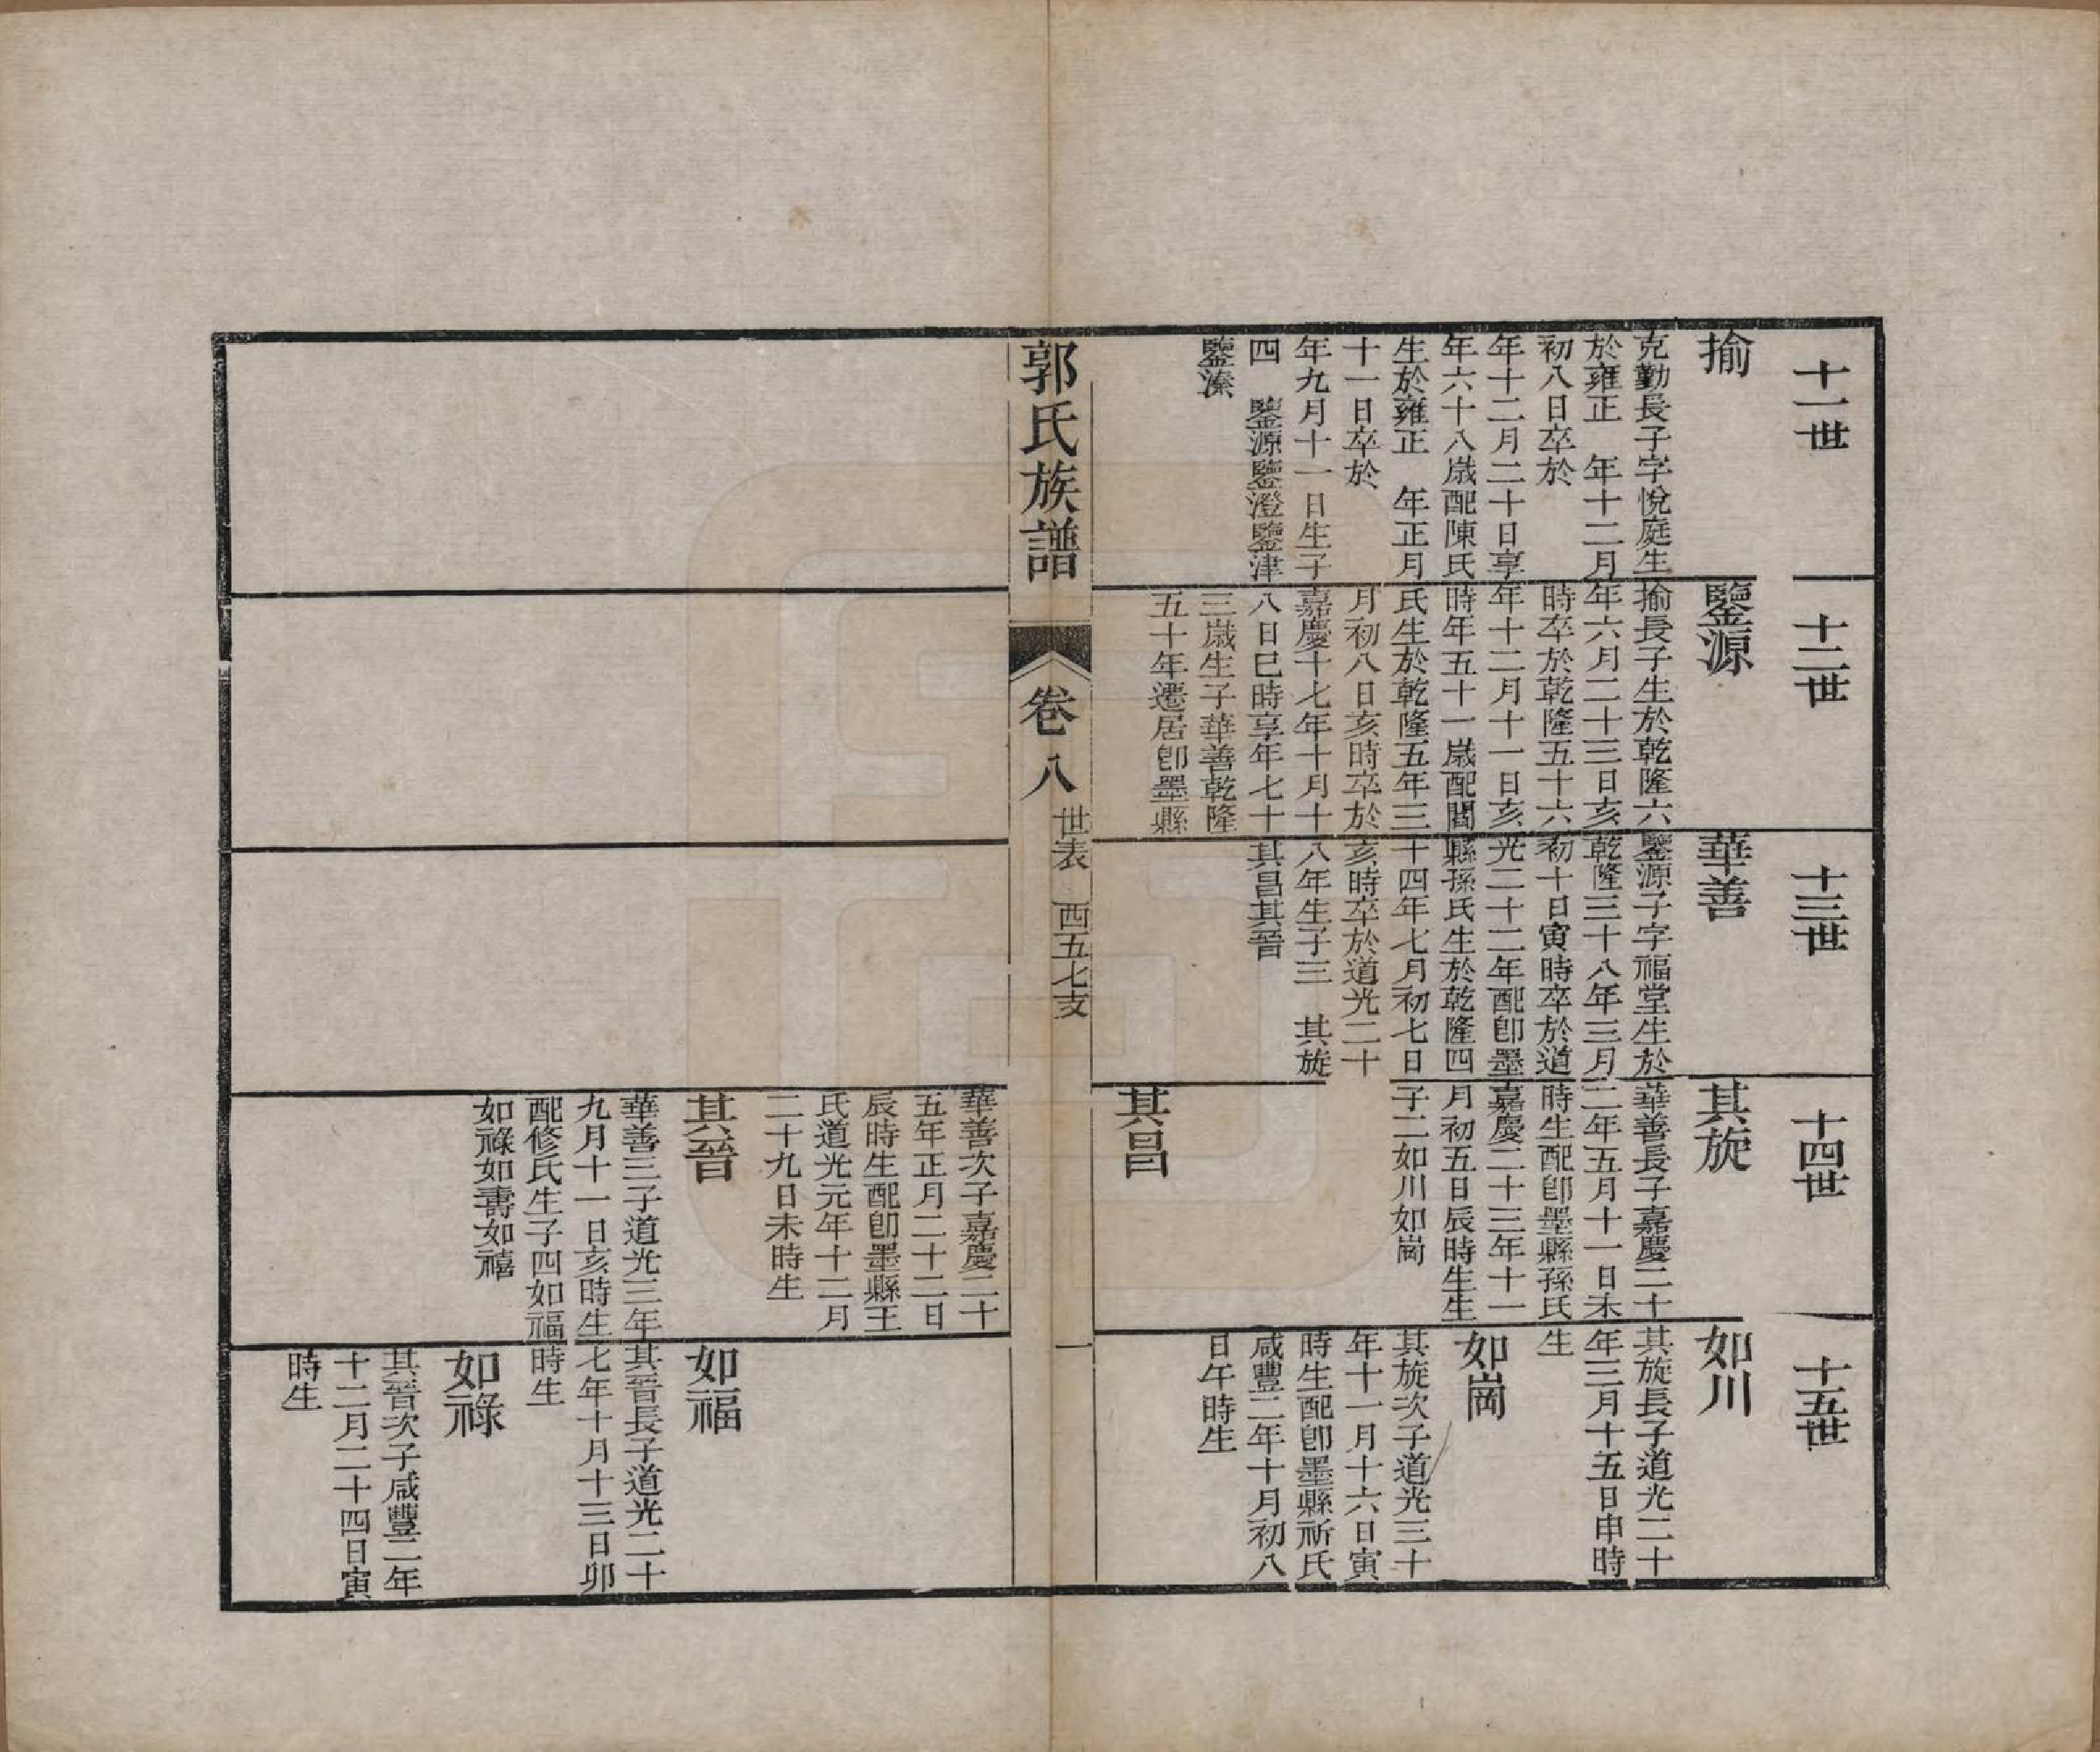 十一世
揄
克勤長子字悅庭生
於雍正　年十二月
初八日卒於
年十二月二十日享
年六十八歲配陳氏
生於雍正　年正月
十一日卒於
年九月十一日生子
四　鑒源鑒澄鑒津
鑒溱
十二世
鑒源
揄長子生於乾隆六
年六月二十三日亥
時卒於乾隆五十六
年十二月十一日亥
時年五十一歲配閻
氏生於乾隆五年三
月初八日亥時卒於
嘉慶十七年十月十
八日巳時享年七十
三歲生子華善乾隆
五十年遷居卽墨縣
十三世
華善
鑒源子字福堂生於
乾隆三十八年三月
初十日寅時卒於道
光二十二年配卽墨
縣孫氏生於乾隆四
十四年七月初七日
亥時卒於道光二十
八年生子三　其旋
其昌其晉
十四世
其旋
華善長子嘉慶二十
二年五月十一日未
時生配卽墨縣孫氏
嘉慶二十三年十一
月初五日辰時生生
子二如川如崗
其昌
十五世
如川
其旋長子道光二十
年三月十五日申時
生
如崗
其旋次子道光三十
年十一月十六日寅
時生配卽墨縣祈氏
咸豐二年十月初八
日午時生
郭氏族譜
卷八
世表　西五七支
一
華善次子嘉慶二十
五年正月二十二日
辰時生配卽墨縣王
氏道光元年十二月
二十九日未時生
其晉
華善三子道光三年
九月十一日亥時生
配修氏生子四如福
如祿如壽如禧
如福
其晉長子道光二十
七年十月十三日卯
時生
如祿
其晉次子咸豐二年
十二月二十四日寅
時生